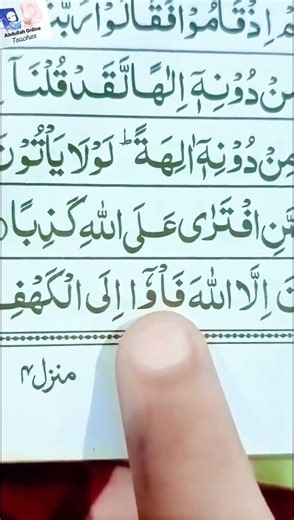 Abdullah Online
Teacher
اِذْ قَامُوْا فَقَالُوْا رَبُّ
دُوْنِهٖۤ اِلٰهًا لَّقَدْ قُلْنَاۤ
مِنْ دُوْنِهٖۤ اٰلِهَةً ؕ لَوْلَا يَاْتُوْنَ
افْتَرٰى عَلَى اللّٰهِ كَذِبًا
اِلَّا اللّٰهَ فَاْوٗۤا اِلَى الْكَهْفِ
منزل ۴